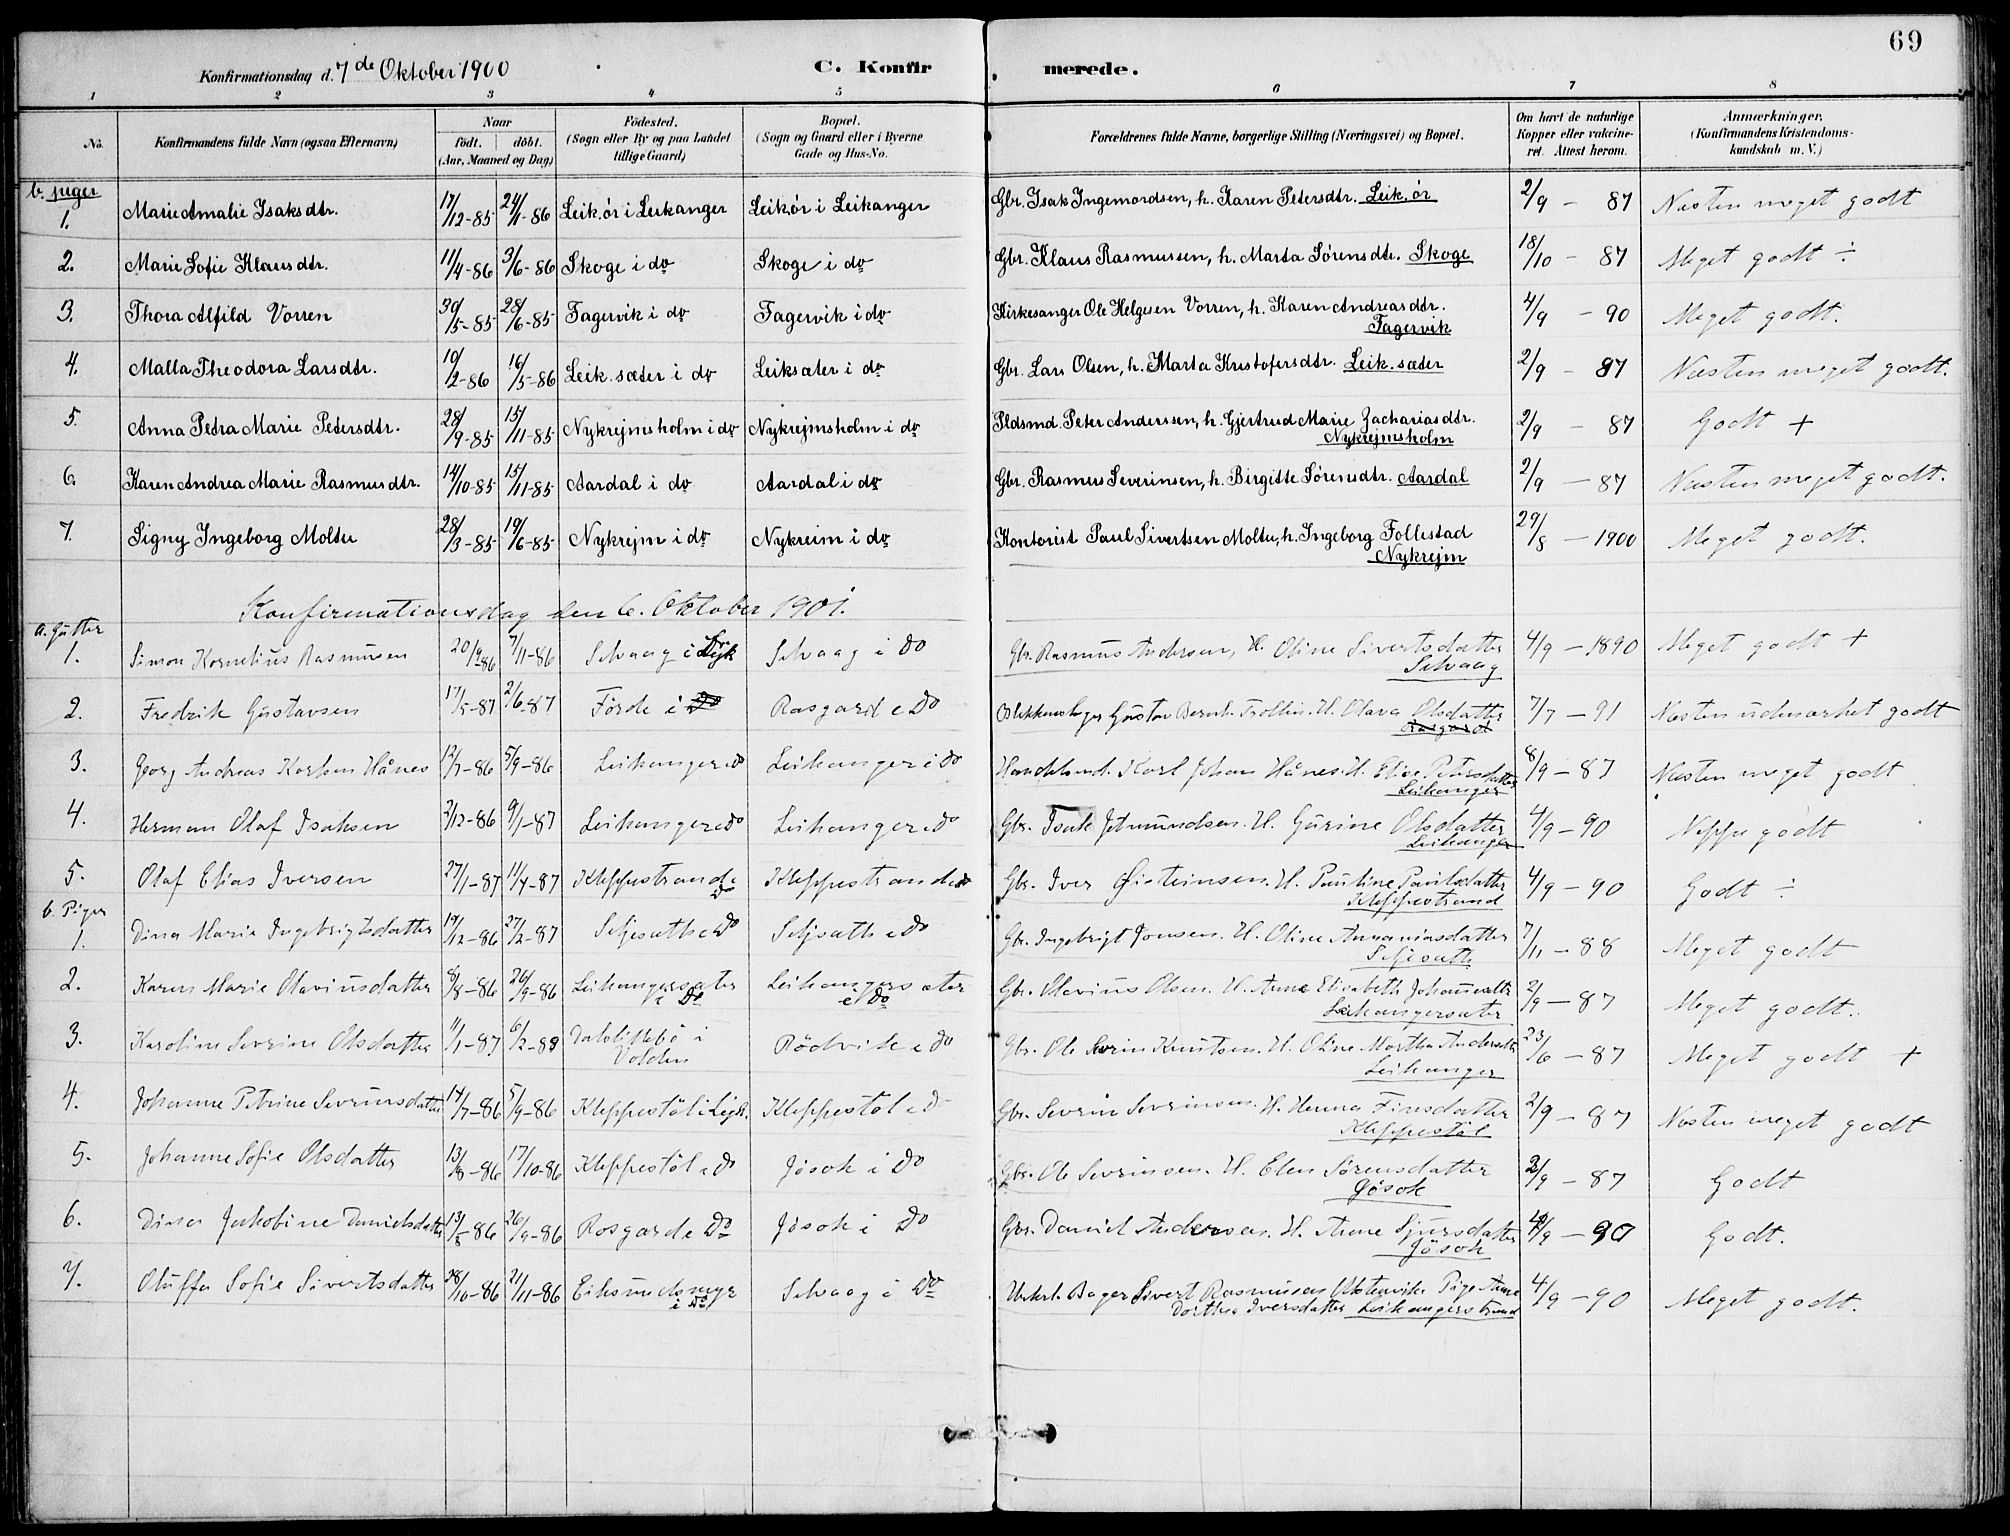 69
Konfirmationsdag d. 7de Oktober 1900 C. Konfirmerede.
1 2 3 4 5 6 7 8
No. Konfirmandens fulde Navn (ogsaa Efternavn) Naar födt. döbt. (Aar, Maaned og Dag) Födested. (Sogn eller By og paa Landet tillige Gaard) Bopæl. (Sogn og Gaard eller i Byerne Gade og Hus-No. Forældrenes fulde Navne, borgerlige Stilling (Næringsvei) og Bopæl. Om havt de naturlige Kopper eller vakcineret. Attest herom. Anmerkninger. (Konfirmandens Kristendomskundskab m. V.)
b. piger
1. Marie Amalie Isaksdtr. 17/12-85 24/1-86 Leik.ör i Leikanger Leikör i Leikanger Gbr. Isak Ingemordsen, h. Karen Petersdtr. Leik.ör 2/9 - 87 Næsten meget godt
2. Marie Sofie Klausdtr. 11/4-86 3/6-86 Skoge i do Skoge i do Gbr. Klaus Rasmussen, h. Marta Sørensdtr. Skoge 18/10 - 87 Meget godt ÷
3. Thora Alfild Vorren 30/5-85 28/6-85 Fagervik i do Fagervik i do Kirkesanger Ole Helgesen Vorren, h. Karen Andreasdtr. 4/9 - 90 Meget godt.
Fagervik
4. Malla Theodora Larsdtr. 10/2-86 16/5-86 Leik.sæter i do Leiksæter i do Gbr. Lars Olsen, h. Marta Kristofersdtr. Leik.sæter 2/9 - 87 Næsten meget godt.
5. Anna Petra Marie Petersdtr. 28/9-85 15/11-85 Nykrejmsholm i do Nykrejmsholm i do Pldsmd. Peter Anderssen, h. Gjertrud Marie Zachariasdtr. 2/9 - 87 Godt +
Nykrejmsholm
6. Karen Andrea Marie Rasmusdtr. 14/10-85 15/11-85 Aardal i do Aardal i do Gbr. Rasmus Severinsen, h. Birgitte Sørensdtr. Aardal 2/9 - 87 Næsten meget godt.
7. Signy Ingeborg Moltu 28/3-85 19/6-85 Nykrejm i do Nykreim i do Kontorist Paul Sivertsen Moltu, h. Ingeborg Follestad 29/8 - 1900 Meget godt.
Nykrejm
Konfirmationsdag den 6. Oktober 1901.
a. Gutter
1. Simon Kornelius Rasmusen 20/9-86 7/11-86 Selvaag i Selvaag i Do Gbr. Rasmus Andersen, H. Oline Sivertsdatter 4/9 - 1890 Meget godt +
Selvaag
2. Fredrik Gustavsen 17/5-87 2/6-87 Förde i Do Rasgard i Do Blikkenslager Gustav Bernh. H. Olava Olsdatter 7/7 - 91 Næsten udmærket godt
Rasgard
3. Georg Andreas Karlsen Hånes 12/7-86 5/9-86 Leikanger i Do Leikanger i Do Handelsmd. Karl Johan Hånes. H. Elise Petersdatter 8/9 - 87 Næsten meget godt
Leikanger
4. Herman Olaf Isaksen 2/12-86 9/1-87 Leikanger i Do Leikanger i Do Gbr. Isak Jetmundsen. H. Gurine Olsdatter 4/9 - 90 Neppe godt
Leikanger
5. Olaf Elias Iversen 27/1-87 11/4-87 Kleppestrand i Do Kleppestrand i do Gbr. Iver Øisteinsen. H. Pauline Paulsdatter 4/9 - 90 Godt ÷
Kleppestrand
b. Piger
1. Dina Marie Ingebrigtsdatter 19/12-86 27/2-87 Seljesæth i Do Seljsæth i Do Gbr. Ingebrigt Jonsen. H. Oline Annaniasdatter 7/11 - 88 Meget godt
Seljesæth
2. Karen Marie Olaviusdatter 8/8-86 26/9-86 Leikangersæter i Do Leikangersæter i Do Gbr. Olavius Olsen. H. Anne Elisabeth 2/9 - 87 Meget godt.
Leikangersæter
3. Karoline Sevrine Olsdatter 11/1-87 6/2-88 i Volden Rödvik i Do Gbr. Ole Sevrin Knutsen. H. Oline Martha 23/6 - 87 Meget godt +
Leikanger
4. Johanne Petrine Sevrinsdatter 14/7-86 5/9-86 Kleppestöl i Kleppestöl i D Gbr. Sevrin Sevrinsen. H. Henna Finsdatter 2/9 - 87 Næsten meget godt
Kleppestöl
5. Johanne Sofie Olsdatter 13/8-86 17/10-86 Kleppestöl i Do Jösok i Do Gbr. Ole Sevrinsen. H. Elen Sörensdatter 2/9 - 87 Godt
Jösok
6. Dina Jakobine Danielsdatter 13/8-86 26/9-86 Rosgard i Do Jösok i Do Gbr. Daniel Andersen. H. Anne Sjursdatter 4/9 - 90 Godt.
Jösok
7. Oluffa Sofie Sivertsdatter 28/10-86 21/11-86 Eiksundsmyr i Do Selvaag i Do Unkrl. Bager Sivert Rasmusen Pige Anne 4/9 - 90 Meget godt.
Dorthea Iversdatter Leikangerstrand